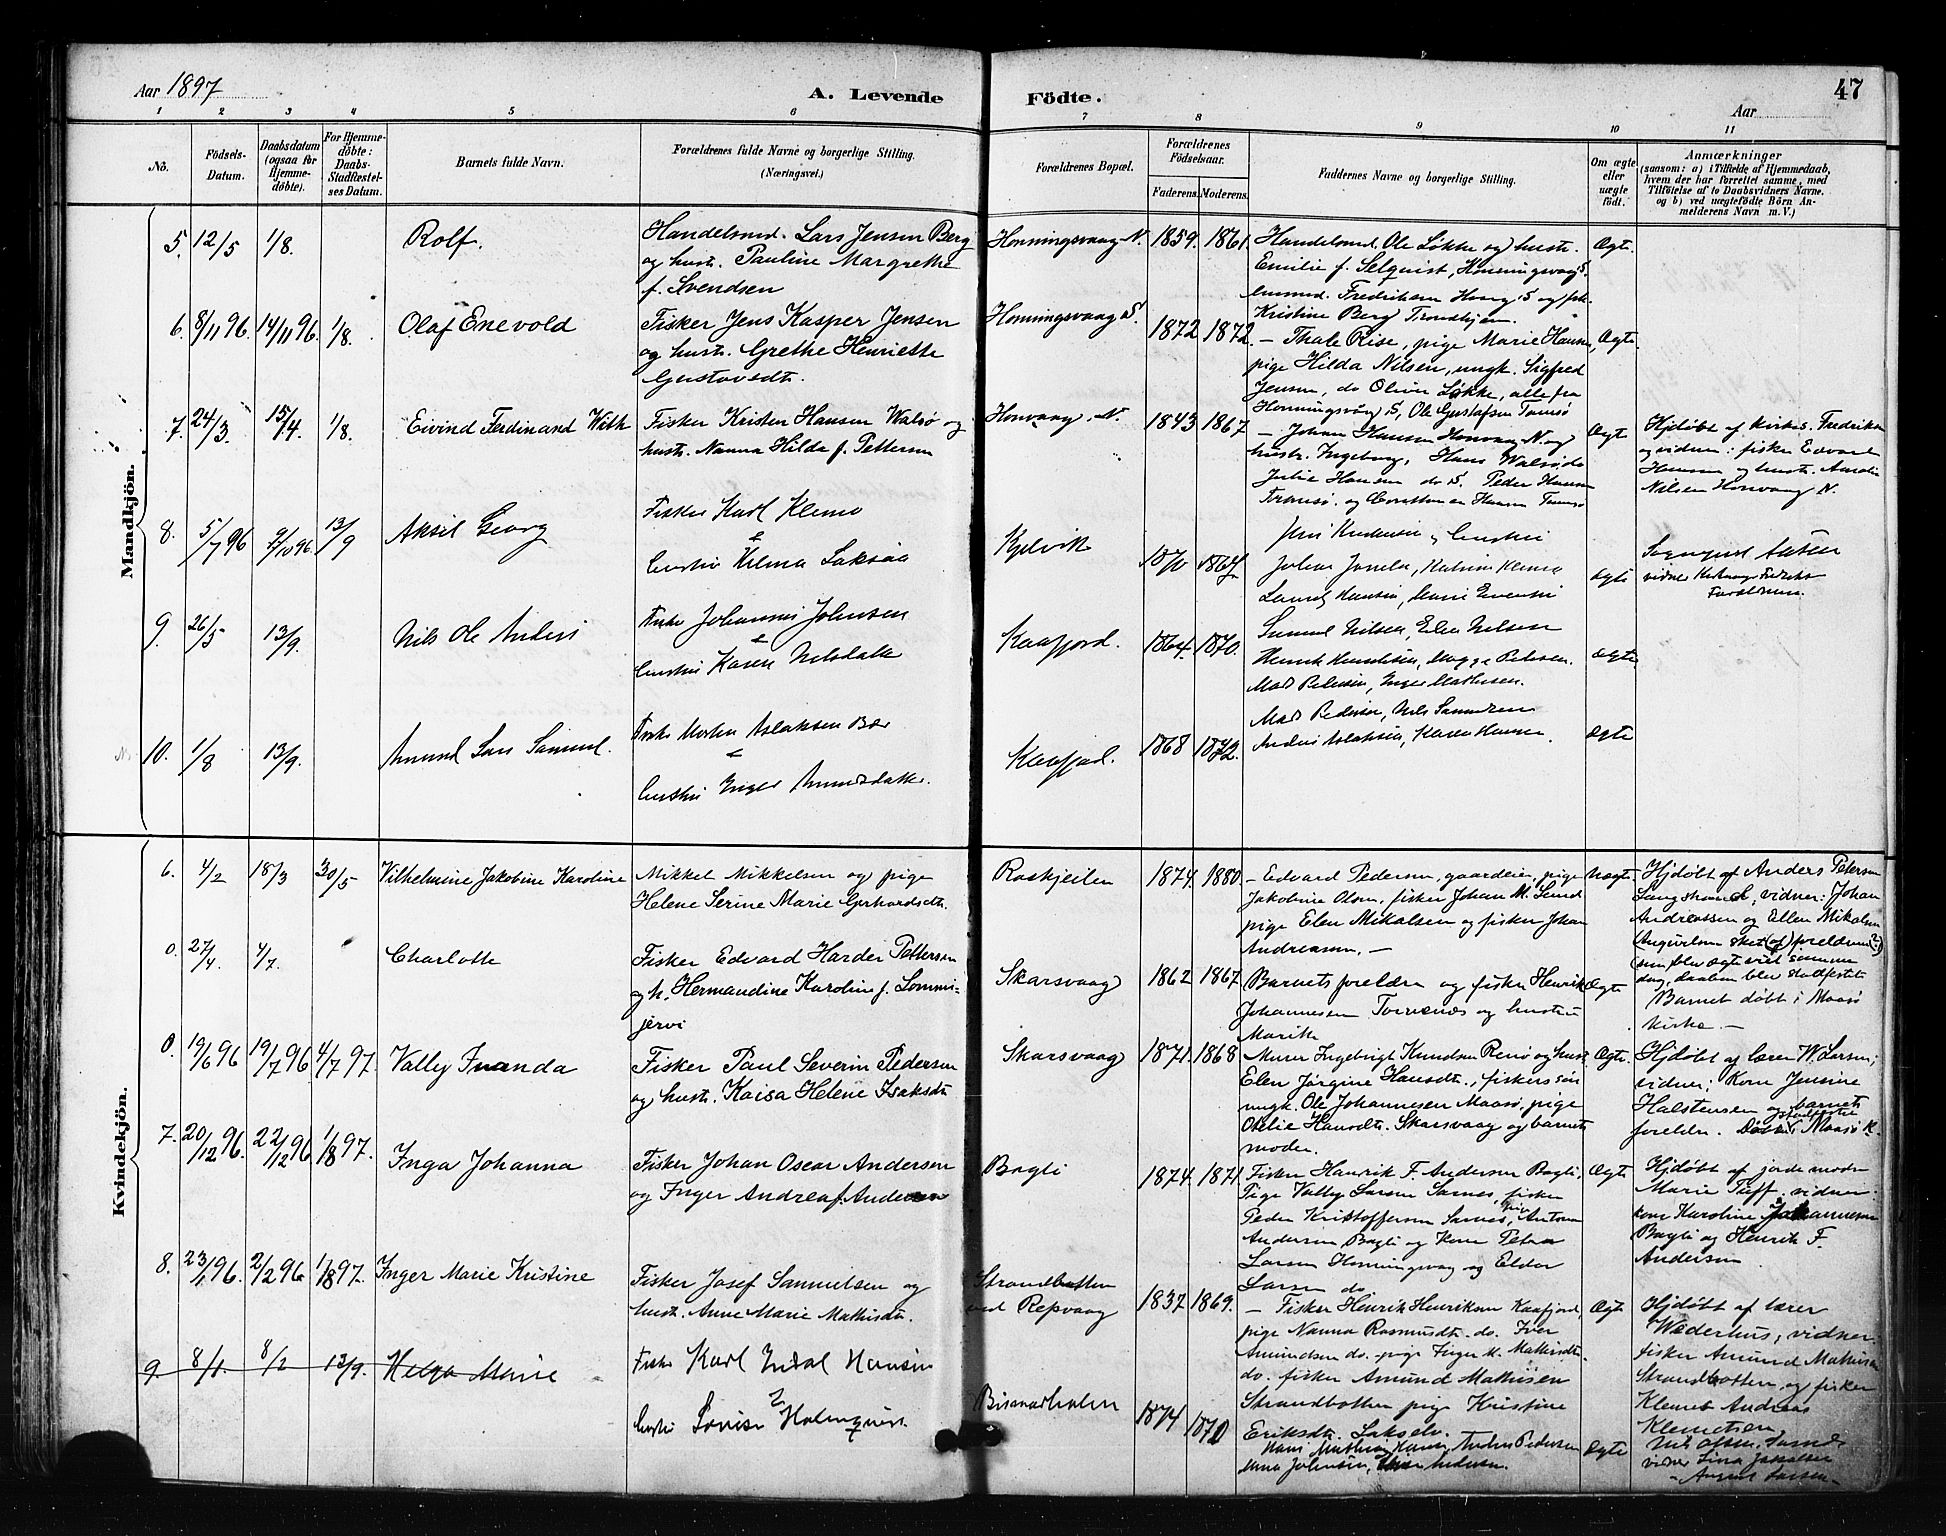 Aar 1897
A. Levende
Födte.
Aar
47
1 2 3 4 5 6 7 8 9 10 11
No.
Födsels-
Datum.
Daabsdatum
(ogsaa for
Hjemme-
döbte).
For Hjemme-
döbte:
Daabs-
Stadfæstel-
ses Datum.
Barnets fulde Navn.
Forældrenes fulde Navne og borgerlige Stilling.
(Næringsvei.)
Forældrenes Bopæl.
Forældrenes
Födselsaar.
Faderens. Moderens.
Faddernes Navne og borgerlige Stilling.
Om ægte
eller
uægte
födt.
Anmærkninger
(saasom: a) i Tilfælde af Hjemmedaab,
hvem der har forrettet samme, med
Tilföielse af to Daabsvidners Navne,
og b) ved uægtefödte Börn An-
melderens Navn m.V.)
Mandkjön.
5. 12/5 1/8. Rolf.
Handelsmd. Lars Jensen Berg
og hustr. Pauline Margrethe
f. Svendsen
Honningsvaag N. 1859. 1861.
Handelsmd. Ole Løkke og hustr.
Emilie f. Selquist, Honningsvaag S.
Fredriksen Honv. S og pk.
Kristine Berg Trondhjem.
Ægte.
6. 8/11 96. 14/11 96. 1/8. Olaf Enevold
Fisker Jens Kasper Jensen
og hustr. Grethe Henriette
Gustavsdt.
Honningsvaag S. 1872 1872.
– Thale Rise, pige Marie Hansen,
pige Hilda Nilsen, ungk. Sigfred
Jensen, do Oliver Løkke, alle fra
Honningsvåg S, Ole Gustafsen Tromsø
Ægte.
7. 24/3. 15/4. 1/8. Eivind Ferdinand With
Fisker Kristen Hansen Walsø og
hustr. Nanna Hilda f. Pettersen
Honvaag. N. 1843 1867
– Johan Hansen Honvaag N. og
hustr. Ingeborg, Hans Walsø do
Julie Hansen do S. Peder Hansen
Tromsø. og Hansen Tromsø
Ægte
Hjdøbt af kirkes. Fredriksen
og vidner: fisker Edvard
Hansen og hustr. Amalie
Nilsen Honvaag N.
8. 5/7 96 9/10 96. 13/9 Aksel Georg
Fisker Karl Klemo
&
Hustru Hilma Laksaa
Kjelvik 1870 1867
Jens Knudsen og hustru
Johan Katrine Klemo
Laurits Hansen, Marie Evensen
Ægte
Sogneprest
vidner
Forældrene.
9. 26/5 13/9. Nils Ole Anders
Fisker Johannes Johnsen
&
hustru Karen Nilsdatter
Kaafjord. 1864. 1870.
Samuel Nilsen, Elen Nilsen
Henrik Henriksen, Magge Pedersen.
Mads Pedersen, Inger Mathisen.
Ægte
10. 1/8 13/9. Amund Lars Samuel.
Fisker Morten Aslaksen Bær
&
hustru Inger Amundsdatter.
Kaafjord. 1868 1872.
Mads Pedersen, Nils Samuelsen
Anders Aslaksen, Karen Hansen.
Ægte
Kvindekjön.
6. 4/2 18/3 30/5 Vilhelmine Jakobine Karoline
Mikkel Mikkelsen og pige
Helene Serine Marie Gerhardsdt.
Roskjeilen 1874. 1880
– Edvard Pedersen, gaardeier, pige
Jakobine Olsen, fisker Johan M. Lund
pige Elen Mikalsen og fisker Johan
Andreasen. –
Uægte.
Hjdøbt af Anders Petersen
vidner: Johan
Andreassen og Ellen Mikalsen
Angivelsen sket (af) forældrene (?)
som blev ægteviet samme
dag, daaben blev stadfestet
0. 27/4 4/7. Charlotte
Fisker Edvard Harder Pettersen
og h. Hermandine Karoline f. Lommi-
jervi
Skarsvaag 1862 1867
Barnets foreldre og fisker Henrik
Johannesen Torvenæs og hustru
Marith
Ægte
Barnet døbt i Maasø
kirke. –
0. 19/6 96 19/7 96 4/7 97. Vally Fnanda
Fisker Paul Severin Pedersen
og hustr. Kaisa Helene Isaksdt
Skarsvaag 1871. 1868
Murer Ingebrigt Knudsen Renø og hust.
Elen Jørgine Hansdt., fiskers søn
ungk. Ole Johannesen Maasø, pige
Otelie Hansdt. Skarsvaag og barnets
moder.
Ægte.
Hjdøbt af lærer W. Larsen;
vidner: Kone Jensine
Halstensen og barnets
foreldre. stadfæstet Døbt i Maasø K.
7. 20/12 96. 22/12 96 1/8 97. Inga Johanna
Fisker Johan Oscar Andersen
og Inger Andrea f. Andersen
Bagli 1874. 1871.
Fisker Henrik F. Andersen Bagli,
Pige Vally Larsen Sarnes, fisker
Peder Kristoffersen Sarnes, pige Antona
Andersen Bagli og Kone Petra
Larsen Honningsvaag og Eldor
Larsen do.
Ægte
Hjdøbt af jordemoder
Marie Tuff. vidner:
kone Karoline Johannesen
Bagli og Henrik F.
Andersen
8. 23/1 96. 2/2 96 1/8 97. Inger Marie Kristine
Fisker Josef Samuelsen og
hust. Anne Marie Mathisdt.
Strandbotten
ved Repvaag 1837 1869.
– Fisker Henrik Henriksen Kaafjord,
pige Nanna Rasmusdt. do. Iver
Amundsen do. pige Inger M. Mathisdt.
do. fisker Amund Mathisen
Strandbotten pige Kristine
Eriksdt. Lakselv.
Ægte
Hjdøbt af lærer
Wæderhus, vidner
fisker Amund Mathisen
Strandbotten, og fisker
Klemet Andreas
Klemetsen,
9 8/1 8/2 13/9. Helga Marie
Fisker Karl Indal Hansen
&
hustru Lovise Holmquist
Bismarholen 1874 1870
Hans Mathias Hansen, Anders Pedersen
Anna Johnsen, Andersen.
Ægte
Nils Olsen. Sarnes
vidner Lina Jakobsen
– August Larsen –